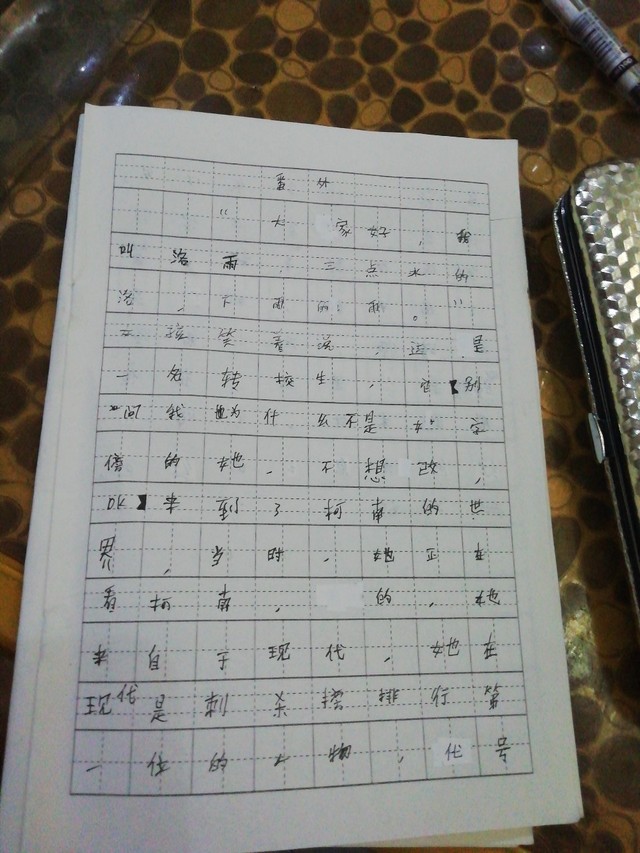 番外
“大家好，我
叫洛雨，三点水的
洛，下雨的雨。”
孩笑着说，这是
一名转校生，它别
问我为什么不是女字
傍的她，不想记，
OK来到了柯南的世
界，当时，她正在
看柯南，的，她
来自于现代，她在
现代是刺杀榜排行第
一位的人物，代号